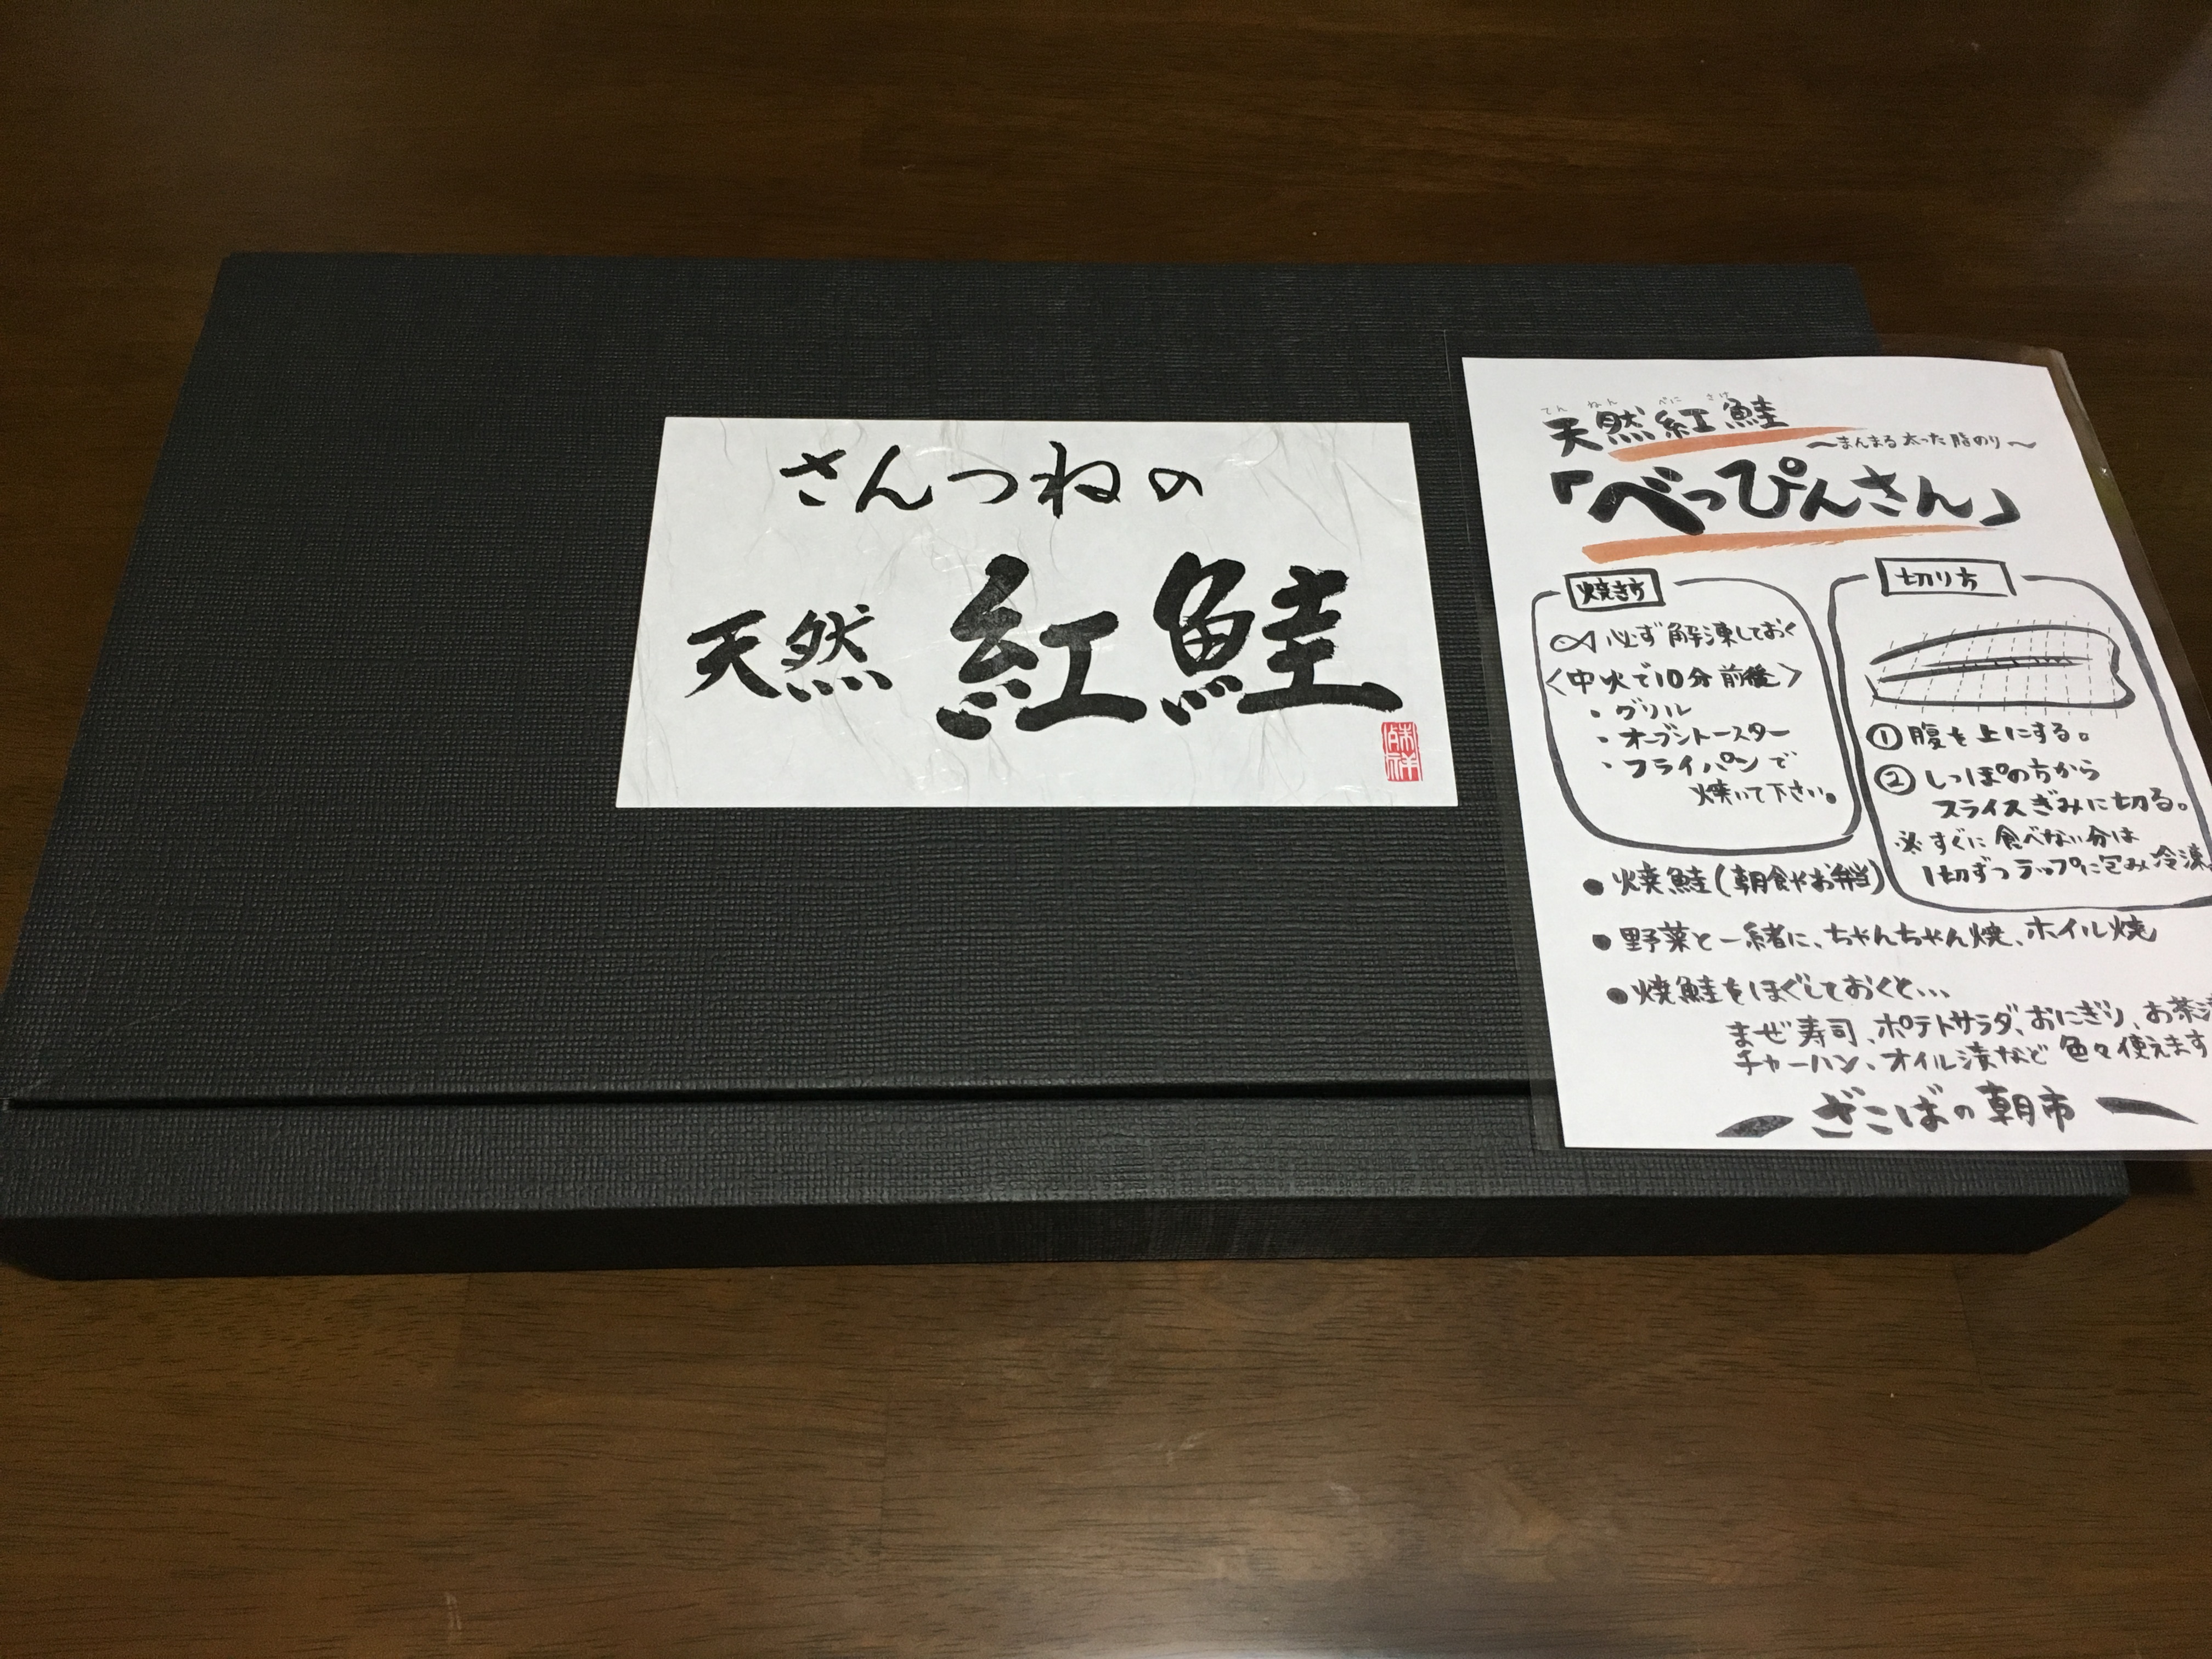 さんつねの
天然 紅鮭
てん ねん べに さけ
天然紅鮭
〜まんまる太った脂のり〜
「べっぴんさん」
焼き方
必ず解凍しておく
〈中火で10分前後〉
・グリル
・オーブントースター
・フライパンで
焼いて下さい。
切り方
① 腹を上にする。
② しっぽの方から
スライスぎみに切る。
※すぐに食べない分は
1切ずつラップに包み冷凍
●焼鮭(朝食やお弁当)
●野菜と一緒に、ちゃんちゃん焼、ホイル焼
●焼鮭をほぐしておくと...
まぜ寿司、ポテトサラダ、おにぎり、お茶漬
チャーハン、オイル漬など色々使えます
ざこばの朝市